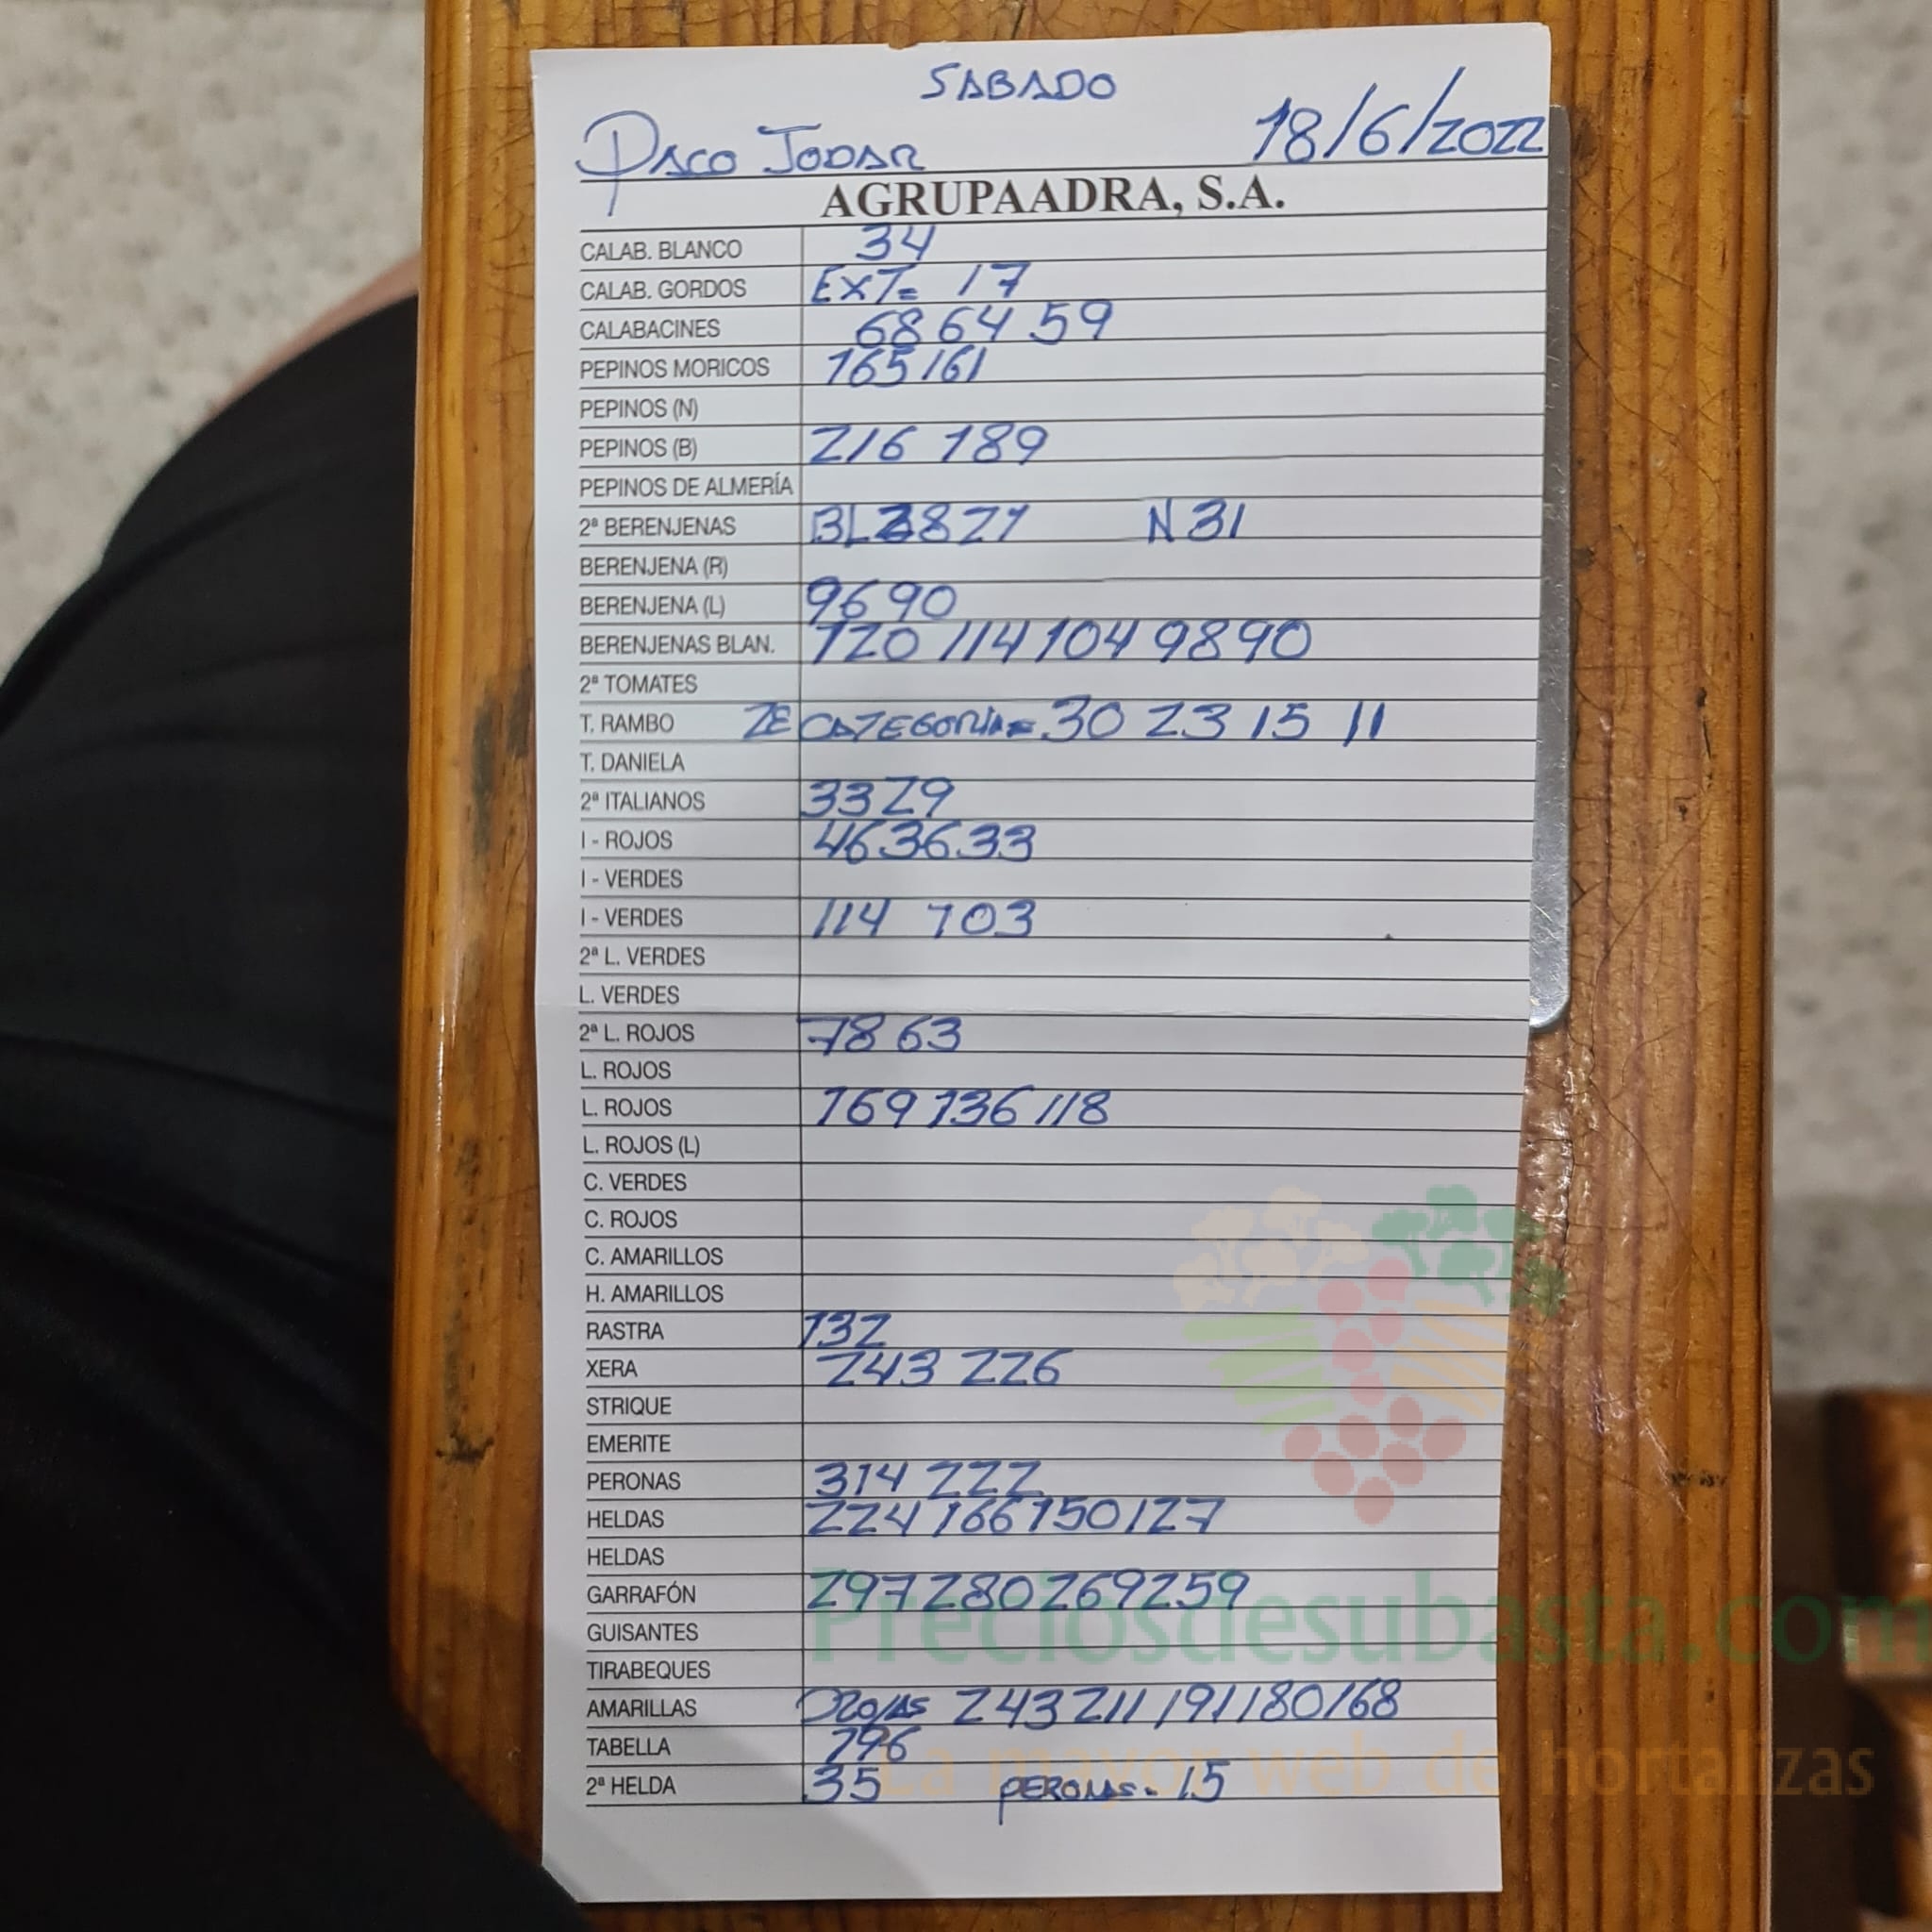 SABADO
PACO JODAR 18/6/2022
AGRUPAADRA, S.A.
CALAB. BLANCO 34
CALAB. GORDOS EXT= 17
CALABACINES 68 64 59
PEPINOS MORICOS 165 161
PEPINOS (N)
PEPINOS (B) 216 189
PEPINOS DE ALMERÍA
2ª BERENJENAS BL 38 21 N 31
BERENJENA (R)
BERENJENA (L) 96 90
BERENJENAS BLAN. 120 114 104 98 90
2ª TOMATES
T. RAMBO 2E CATEGORIA= 30 23 15 11
T. DANIELA
2ª ITALIANOS 33 29
I - ROJOS 46 36 33
I - VERDES
I - VERDES 114 103
2ª L. VERDES
L. VERDES
2ª L. ROJOS 78 63
L. ROJOS
L. ROJOS 169 136 118
L. ROJOS (L)
C. VERDES
C. ROJOS
C. AMARILLOS
H. AMARILLOS
RASTRA 132
XERA 243 226
STRIQUE
EMERITE
PERONAS 314 222
HELDAS 224 166 150 127
HELDAS
GARRAFÓN 297 280 269 259
Preciosdesubasta.com
GUISANTES
TIRABEQUES
AMARILLAS 243 211 191 180 168
TABELLA 196
La mayor web de hortalizas
2ª HELDA 35 PERONAS- 15